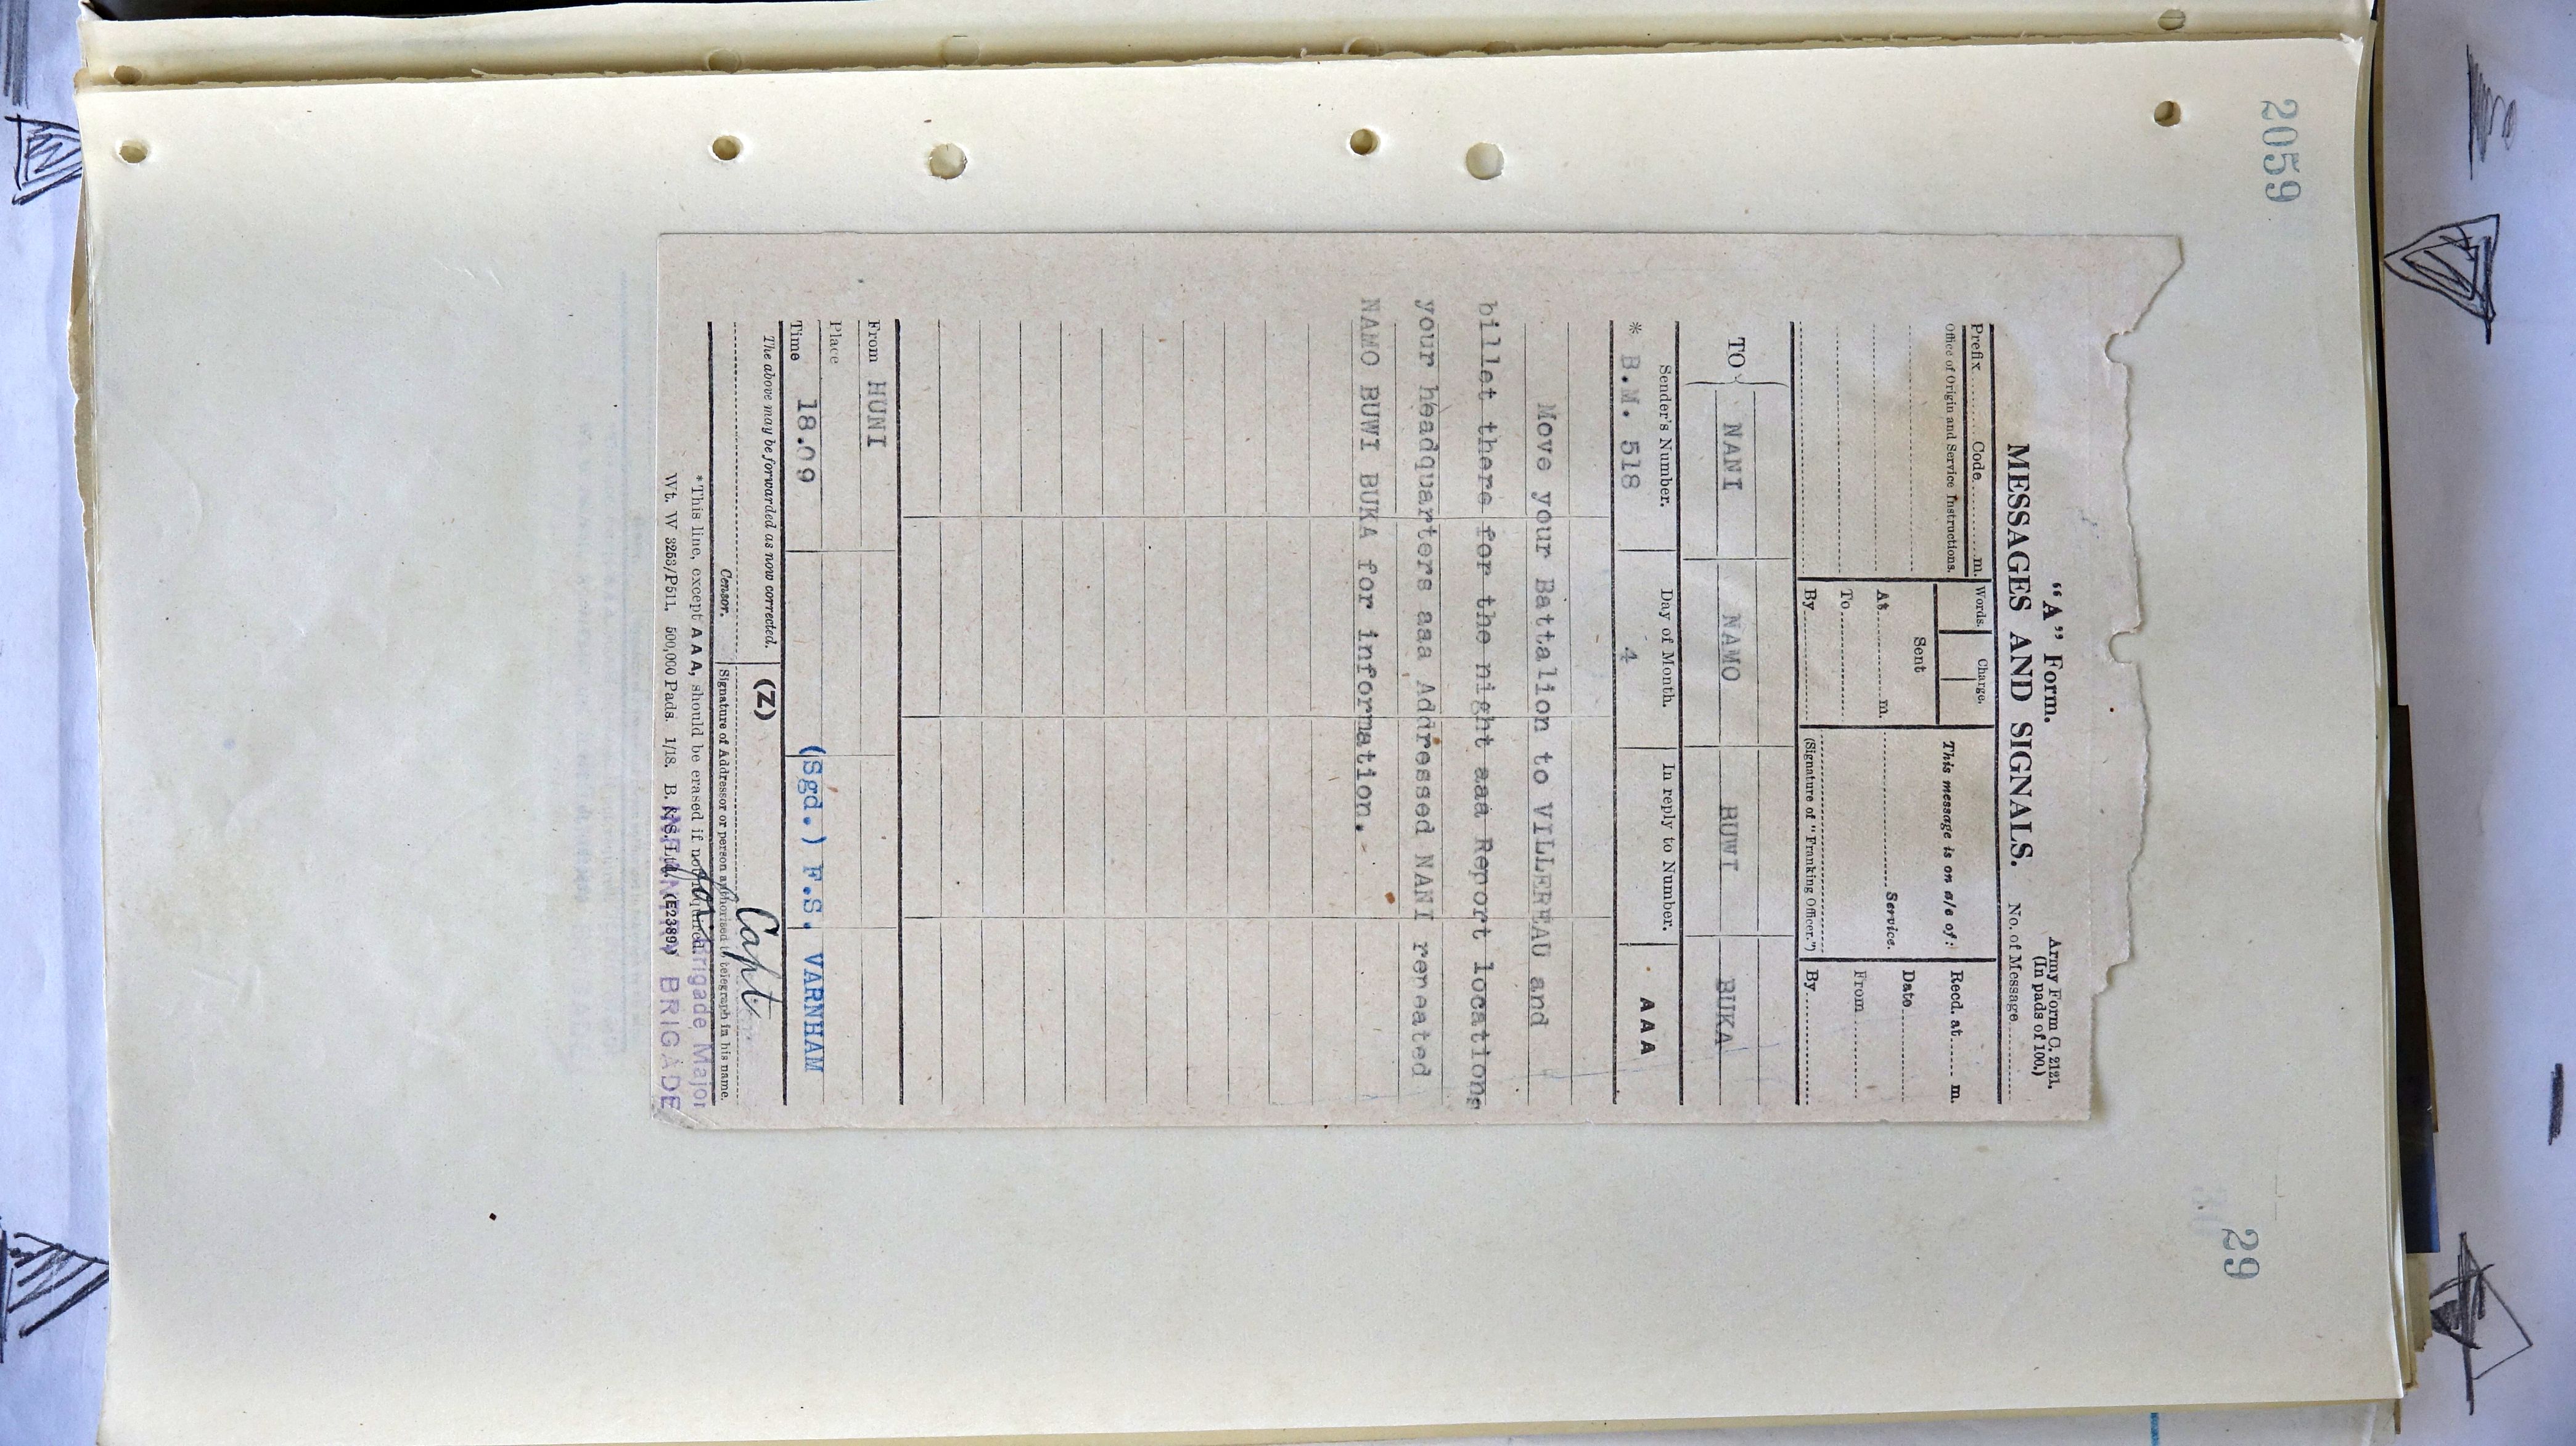 2059
29
"A" Form.
Army Form C. 2121.
(In pads of 100.)
MESSAGES AND SIGNALS.
No. of Message
Prefix Code m.
Words.
Charge.
This message is on a/c of:
Recd. at m.
Office of Origin and Service Instructions.
Sent
At m.
To
By
Service.
(Signature of "Franking Officer.")
Date
From
By
TO
NANI NAMO BUWI BUKA
Sender's Number.
Day of Month.
In reply to Number.
* B.M. 518
4
AAA
Move your Battalion to VILLEREAU and
billet there for the night aaa Report locations
your headquarters aaa Addressed NANI repeated
NAMO BUWI BUKA for information.
From HUNI
Place
Time 18.09
(Sgd.) F.S. VARNHAM
The above may be forwarded as now corrected.
(Z)
Capt
Censor.
Signature of Addressor or person authorised to telegraph in his name.
* This line, except AAA, should be erased if not required.
for Brigade Major
Wt. W 3253/P511. 500,000 Pads. 1/18. B. & S. Ltd. (E2389)
BRIGADE